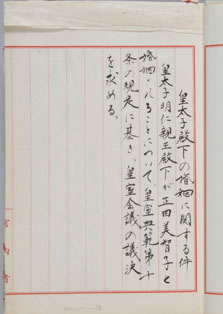 皇太子殿下の婚姻に関する件
皇太子明仁親王殿下が正田美智子と
婚姻されることについて皇室典範第十
条の規定に基き、皇室会議の議決
を求める。